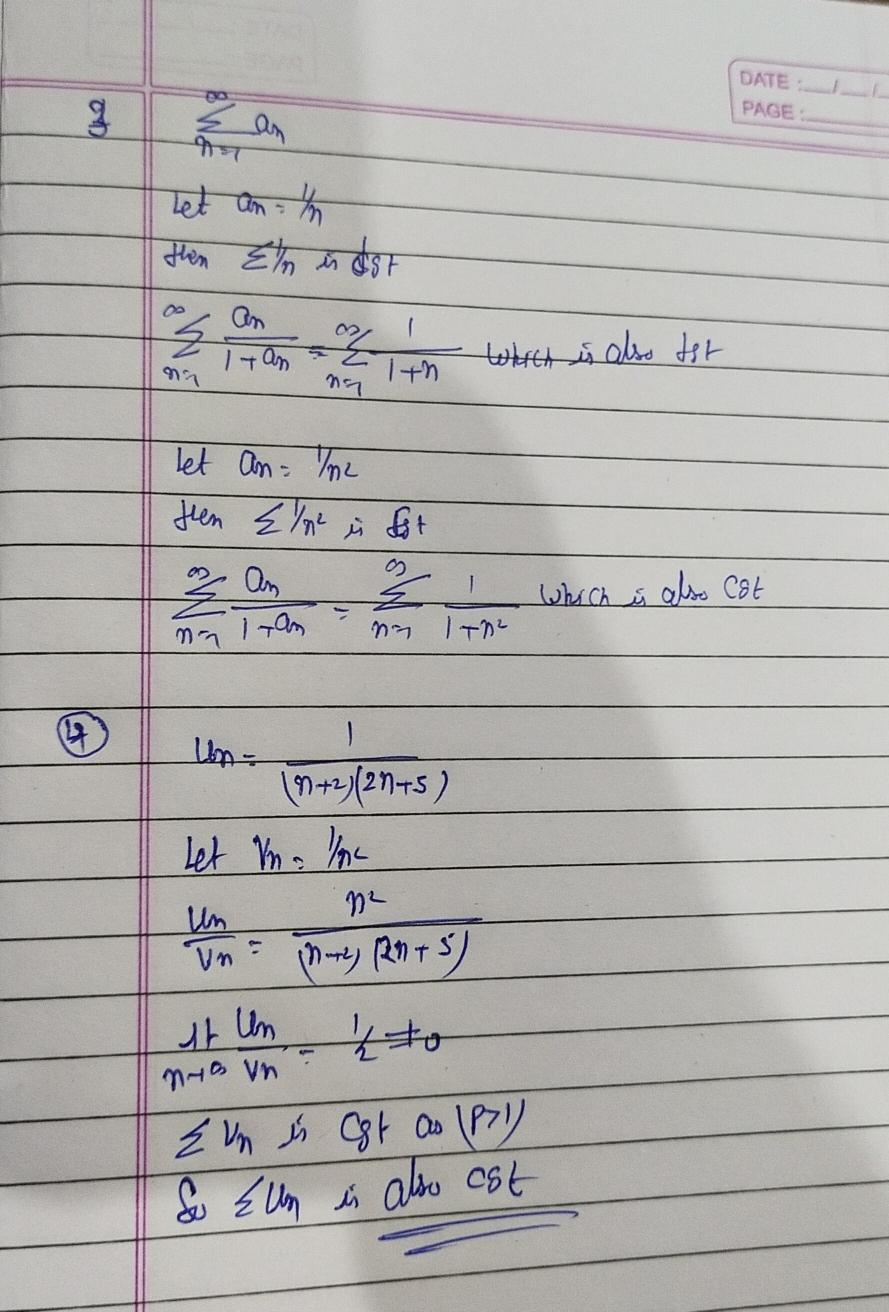 DATE: __/__/
PAGE:
3 ∞Σn=1 an
Let an = 1/n
then Σ1/n is dgt
∞Σn=1 an/(1+an) = ∞Σn=1 1/(1+n) which is also dgt
Let an = 1/n²
then Σ1/n² is cgt
∞Σn=1 an/(1+an) = ∞Σn=1 1/(1+n²) which is also cgt
④ Un = 1/((n+2)(2n+5))
Let Vn = 1/n²
Un/Vn = n²/((n+2)(2n+5))
lt n→∞ Un/Vn = 1/2 ≠ 0
Σ Vn is cgt as (P>1)
So ΣUn is also cgt